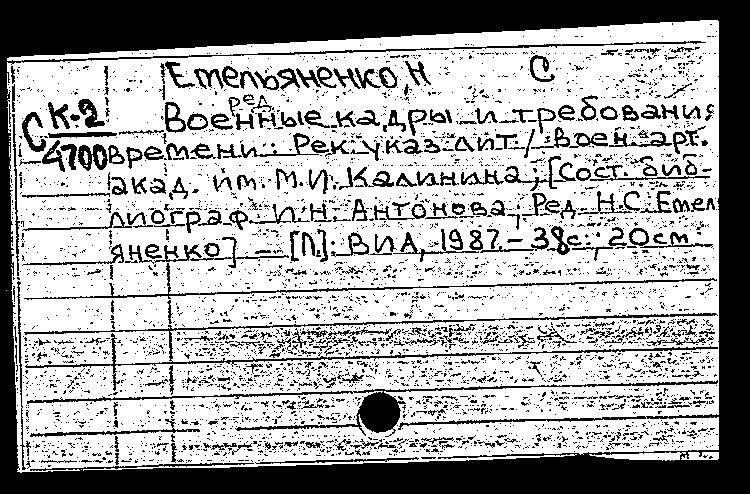 Емельяненко, Н С
ред
К-2 Военные кадры и требования
С 4700 времени: Рек. указ. лит. / Воен. арт.
акад. им. М.И. Калинина; [Сост. биб-
лиограф И.Н. Антонова; Ред. Н.С. Емель
яненко] – [Л.]: ВИА, 1987. – 38с.; 20см